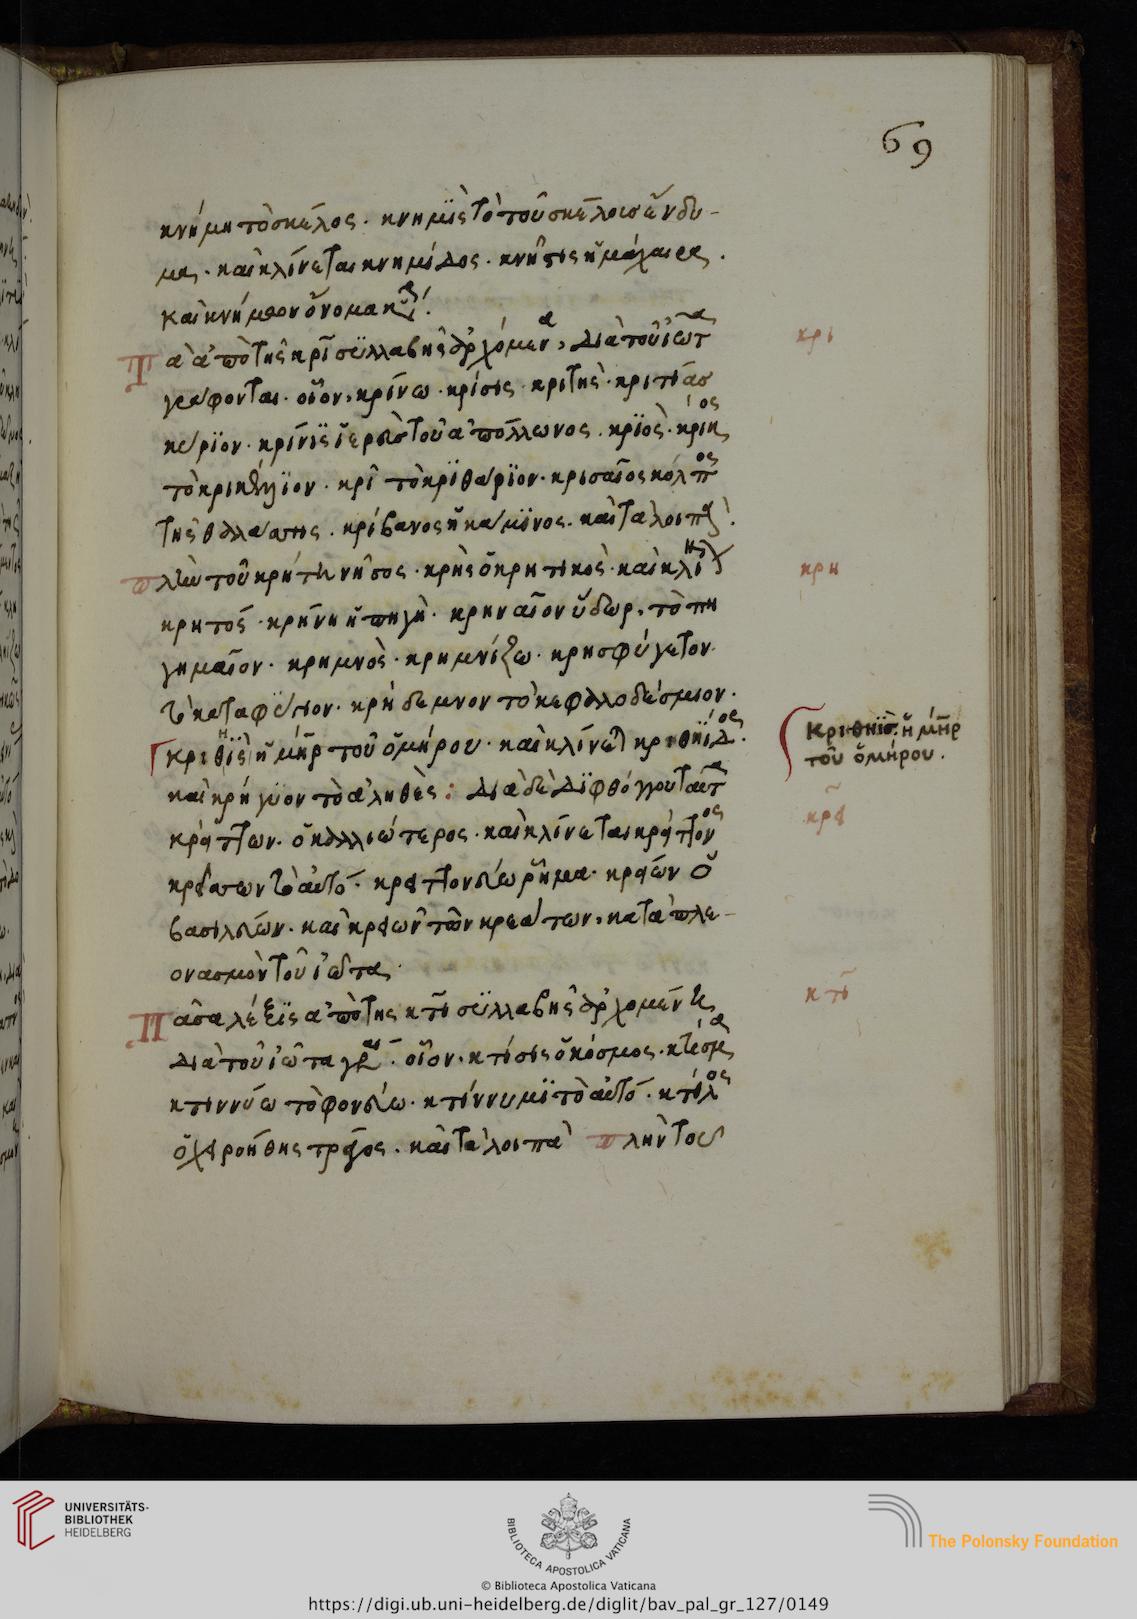 69
κνήμη τὸ σκέλος · κνημὶς τὸ τοῦ σκέλους ἔνδυ-
μα · καὶ κλίνεται κνημίδος · κνῆστις ἡ μάχαιρα ·
καὶ κνήμων ὄνομα
Τὰ ἀπὸ τῆς κρι συλλαβῆς ἀρχόμενα, διὰ τοῦ ἰῶτα
κρι
γράφονται · οἷον, κρίνω · κρίσις · κριτής ·
κύριον · ἱερεὺς τοῦ ἀπόλλωνος · κριὸς ·
τὸ · κρῖ τὸ κριθάριον · κρισαῖος κόλπος
τῆς θαλάσσης · κρίβανος ἡ κάμινος · καὶ τὰ λοιπά ·
πλὴν τοῦ κρήτη νῆσος · κρὴς ὁ κρητικὸς · καὶ
κρη
κρητός · κρήνη ἡ πηγὴ · κρηναῖον ὕδωρ, τὸ πη
γημαῖον · κρημνὸς · κρημνίζω · κρησφύγετον
τὸ καταφύγιον · κρήδεμνον τὸ κεφαλοδέσμιον ·
κριθηῒς ἡ μήτηρ τοῦ ὁμήρου · καὶ κλίνεται κριθηΐδος ·
Κριθηῒς · ἡ μήτηρ
τοῦ ὁμήρου .
καὶ κρήγυον τὸ ἀληθὲς : διὰ δὲ διφθόγγου ταῦτα
κραι
κρείττων · ὁ καλλιώτερος · καὶ κλίνεται κρείττονος
κρείσσων τὸ αὐτό · ῥῆμα · κρείων ὁ
βασιλεύων · καὶ κρειῶν τῶν κρεάτων, κατὰ πλε-
ονασμὸν τοῦ ἰῶτα ·
Πᾶσα λέξις ἀπὸ τῆς κτι συλλαβῆς ἀρχομένη
κτι
διὰ τοῦ ἰῶτα γράφεται · οἷον · κτίσις ὁ κόσμος · κτίσμα
κτιννύω τὸ φονεύω · κτίννυμι τὸ αὐτό · κτίλος
τράγος · καὶ τὰ λοιπὰ πλὴν τοῦ
UNIVERSITÄTS-
BIBLIOTHEK
HEIDELBERG
BIBLIOTECA APOSTOLICA VATICANA
The Polonsky Foundation
© Biblioteca Apostolica Vaticana
https://digi.ub.uni-heidelberg.de/diglit/bav_pal_gr_127/0149